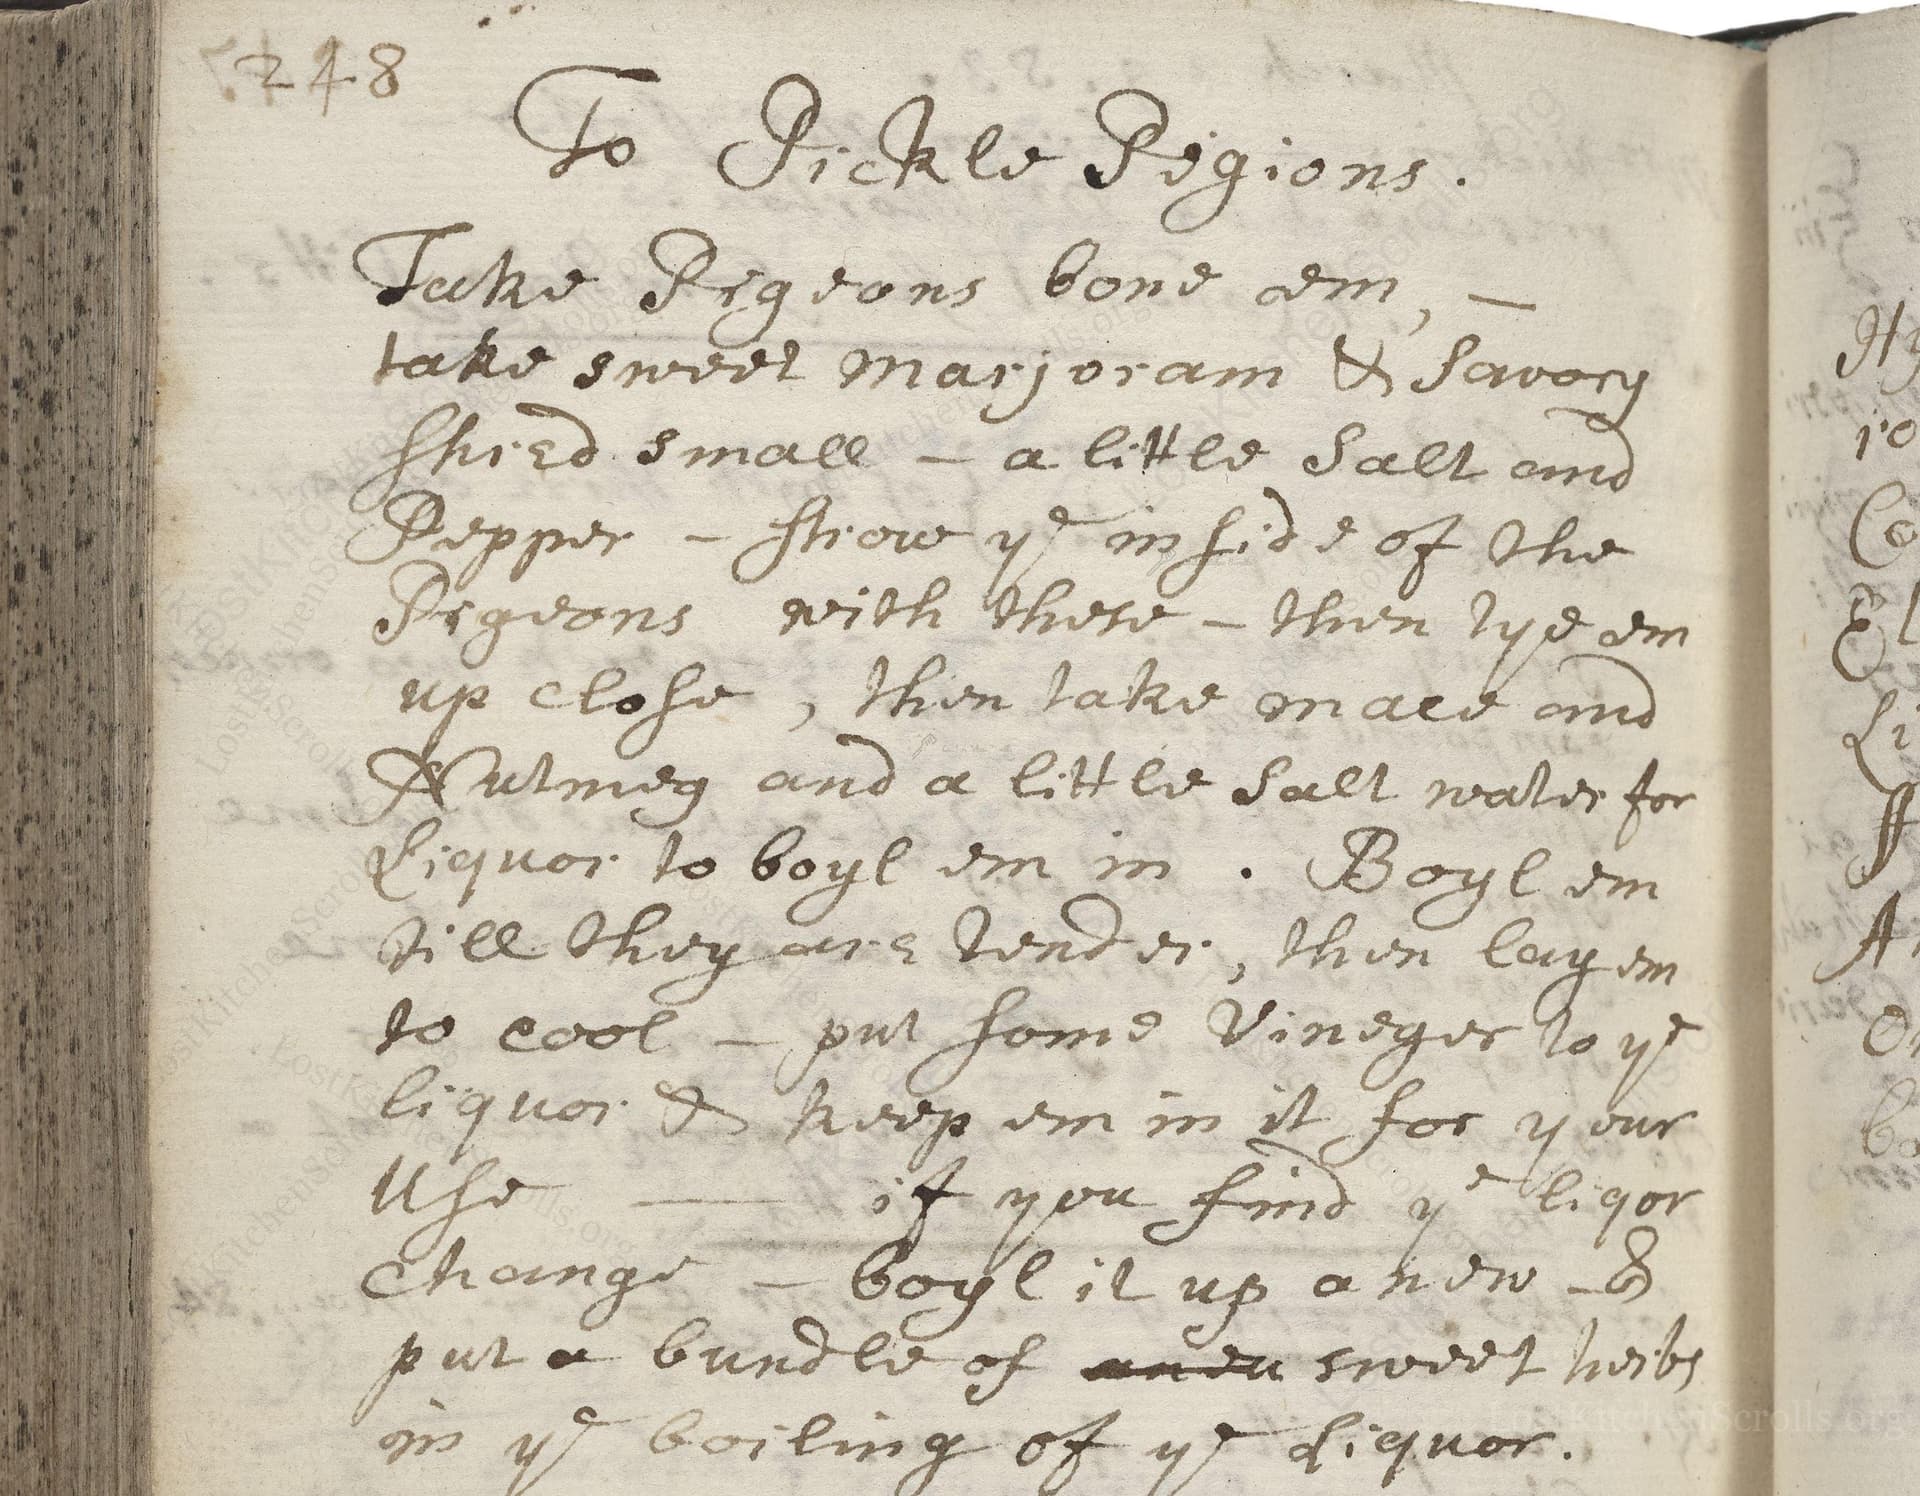 248
To Pickle Pigions.
Take Pigeons bone em, —
take sweet marjoram & Savory
shred small – a little Salt and
Pepper – strow yᵉ inside of the
Pigeons with these – then tye em
up close, then take mace and
Nutmeg and a little Salt water for
Liquor to boyl em in. Boyl em
till they are tender, then lay em
to cool – put some Vineger to yᵉ
liquor & keep em in it for your
Use — if you find yᵉ liqor
change – boyl it up anew – &
put a bundle of sweet herbs
in yᵉ boiling of yᵉ Liquor.
LostKitchenScrolls.org